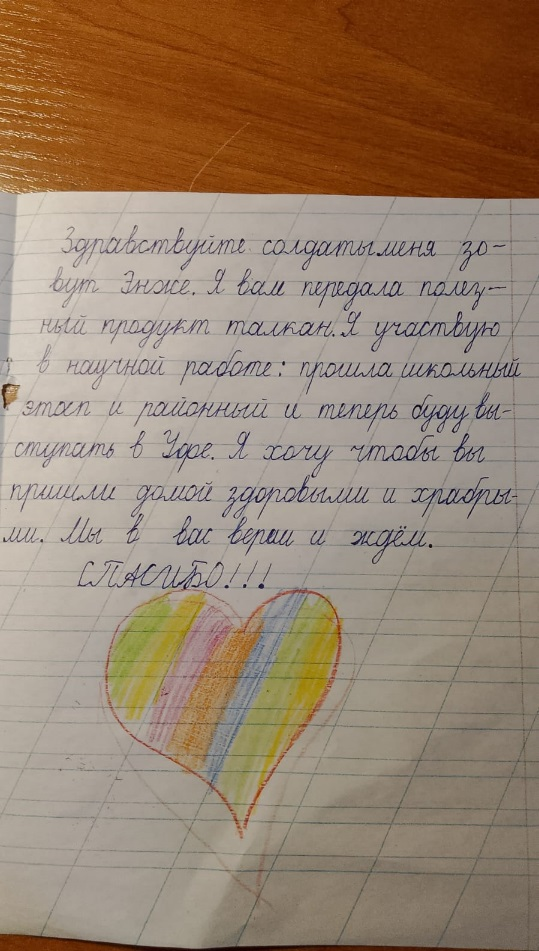 Здравствуйте солдаты меня зо-
вут Энже. Я вам передала полез-
ный продукт талкан. Я участвую
в научной работе: прошла школьный
этап и районный и теперь буду вы-
ступать в Уфе. Я хочу чтобы вы
пришли домой здоровыми и храбры-
ми. Мы в вас верим и ждём.
СПАСИБО!!!